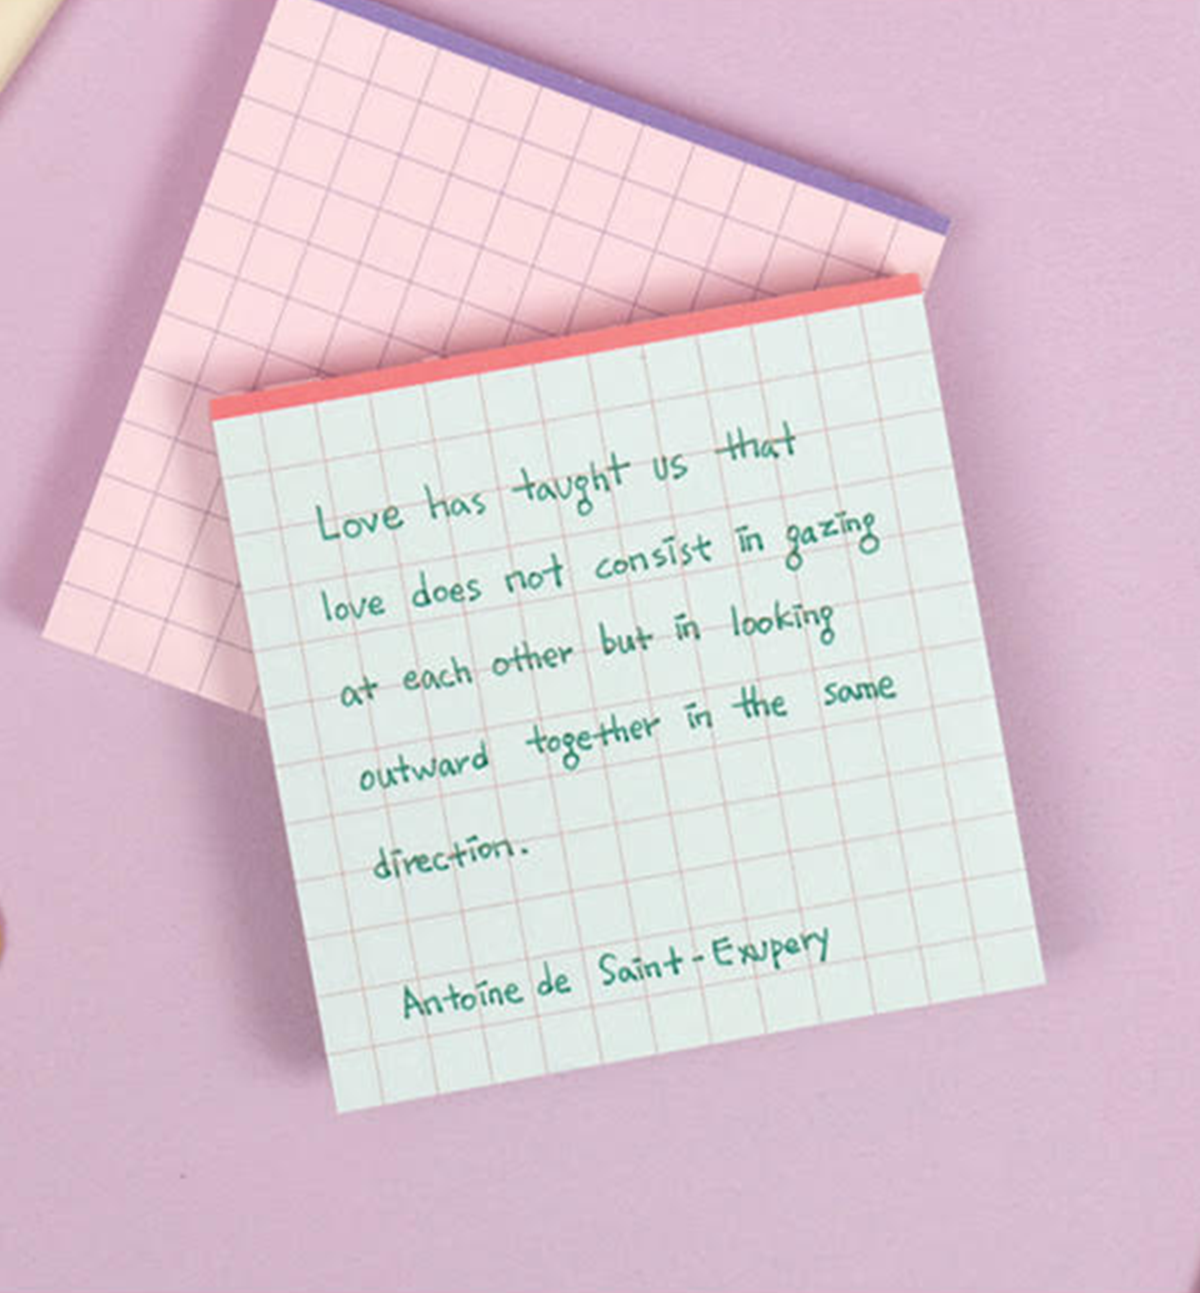 Love has taught us that
love does not consist in gazing
at each other but in looking
outward together in the same
direction.
Antoine de Saint-Exupery